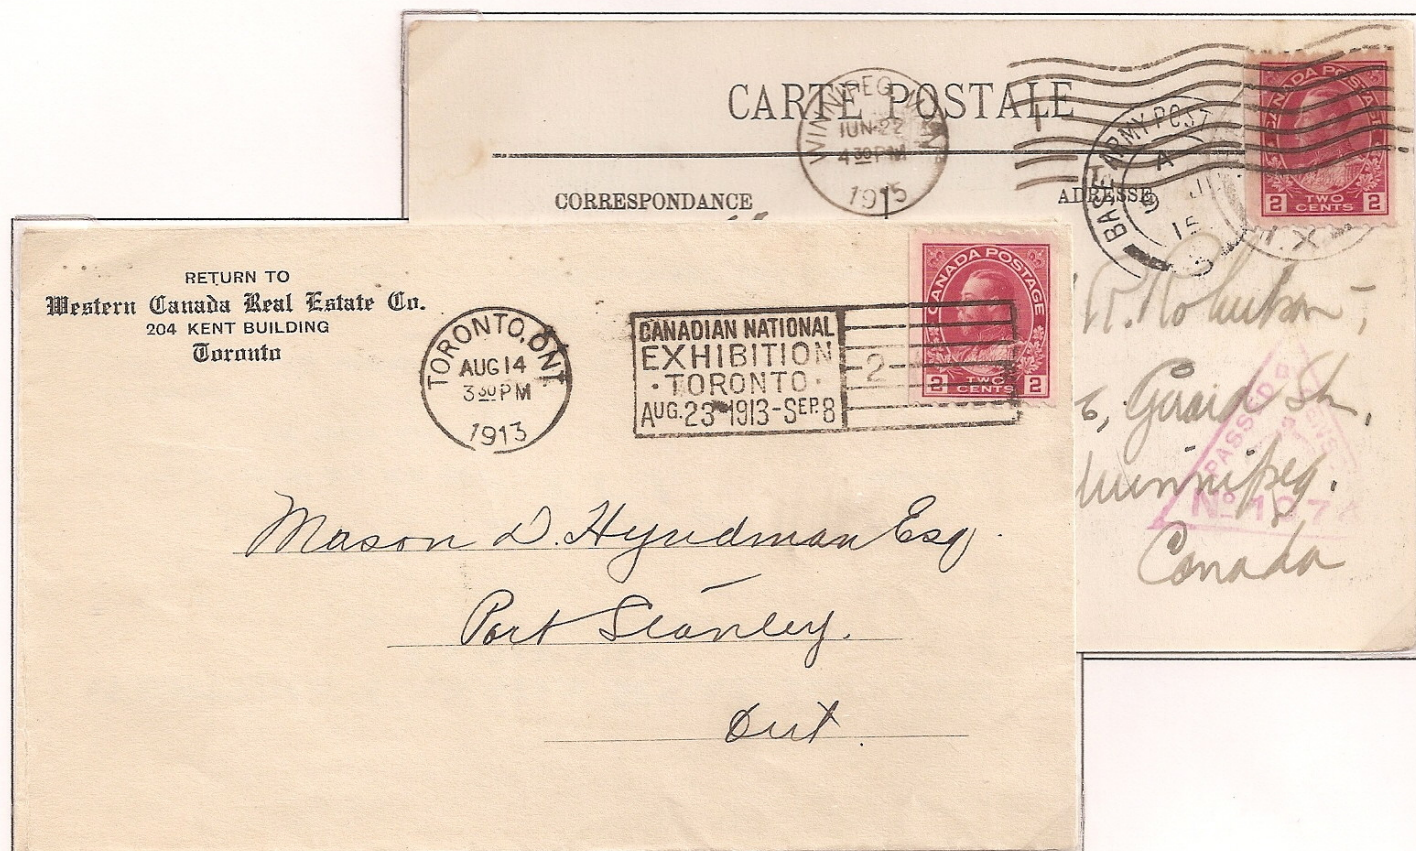 CARTE POSTALE
WINNIPEG, MAN.
JUN 22
4 30 PM
1915
CORRESPONDANCE
ADRESSE
BASE ARMY POST
A
15
CANADA POSTAGE
2 TWO CENTS 2
R. Robertson,
Girard St.,
Winnipeg.
Canada
PASSED BY CENSOR
No 127
RETURN TO
Western Canada Real Estate Co.
204 KENT BUILDING
Toronto
TORONTO, ONT.
AUG 14
3 30 PM
1913
CANADIAN NATIONAL
EXHIBITION
· TORONTO ·
AUG. 23 - 1913 - SEP. 8
2
CANADA POSTAGE
2 TWO CENTS 2
Mason D. Hyndman Esq.
Port Stanley.
Ont.